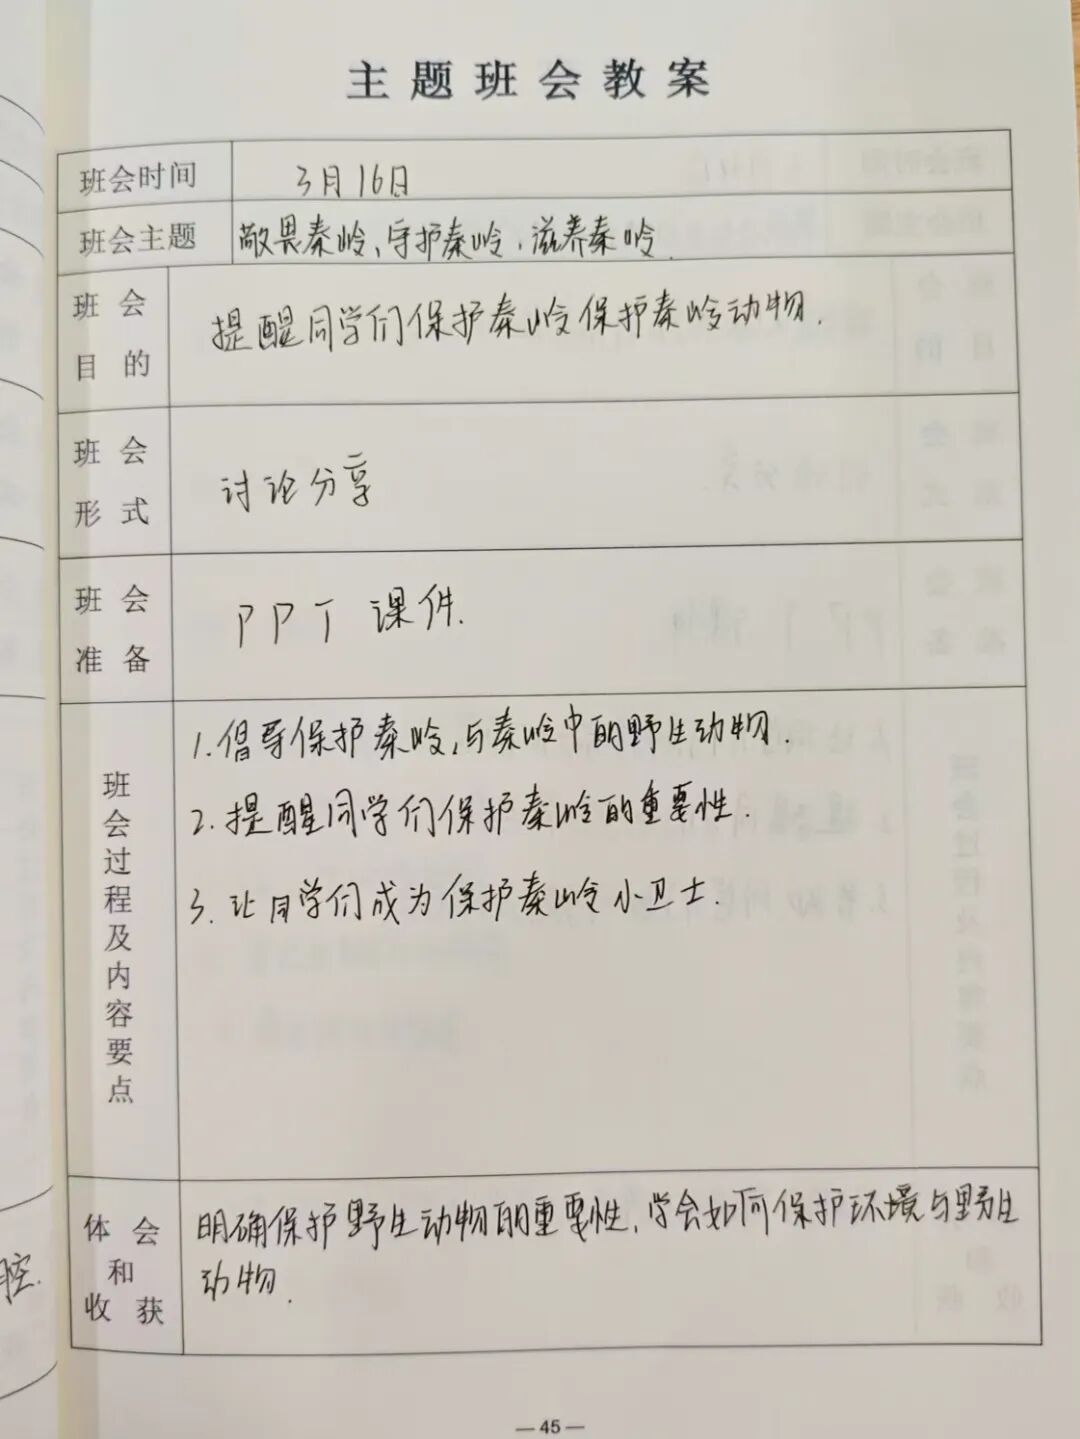 主题班会教案
班会时间 3月16日
班会主题 敬畏秦岭、守护秦岭、滋养秦岭.
班会目的 提醒同学们保护秦岭保护秦岭动物.
班会形式 讨论分享
班会准备 PPT 课件.
班会过程及内容要点
1.倡导保护秦岭,与秦岭中的野生动物.
2.提醒同学们保护秦岭的重要性.
3.让同学们成为保护秦岭小卫士.
体会和收获
明确保护野生动物的重要性,学会如何保护环境与野生
动物.
腔.
—45—